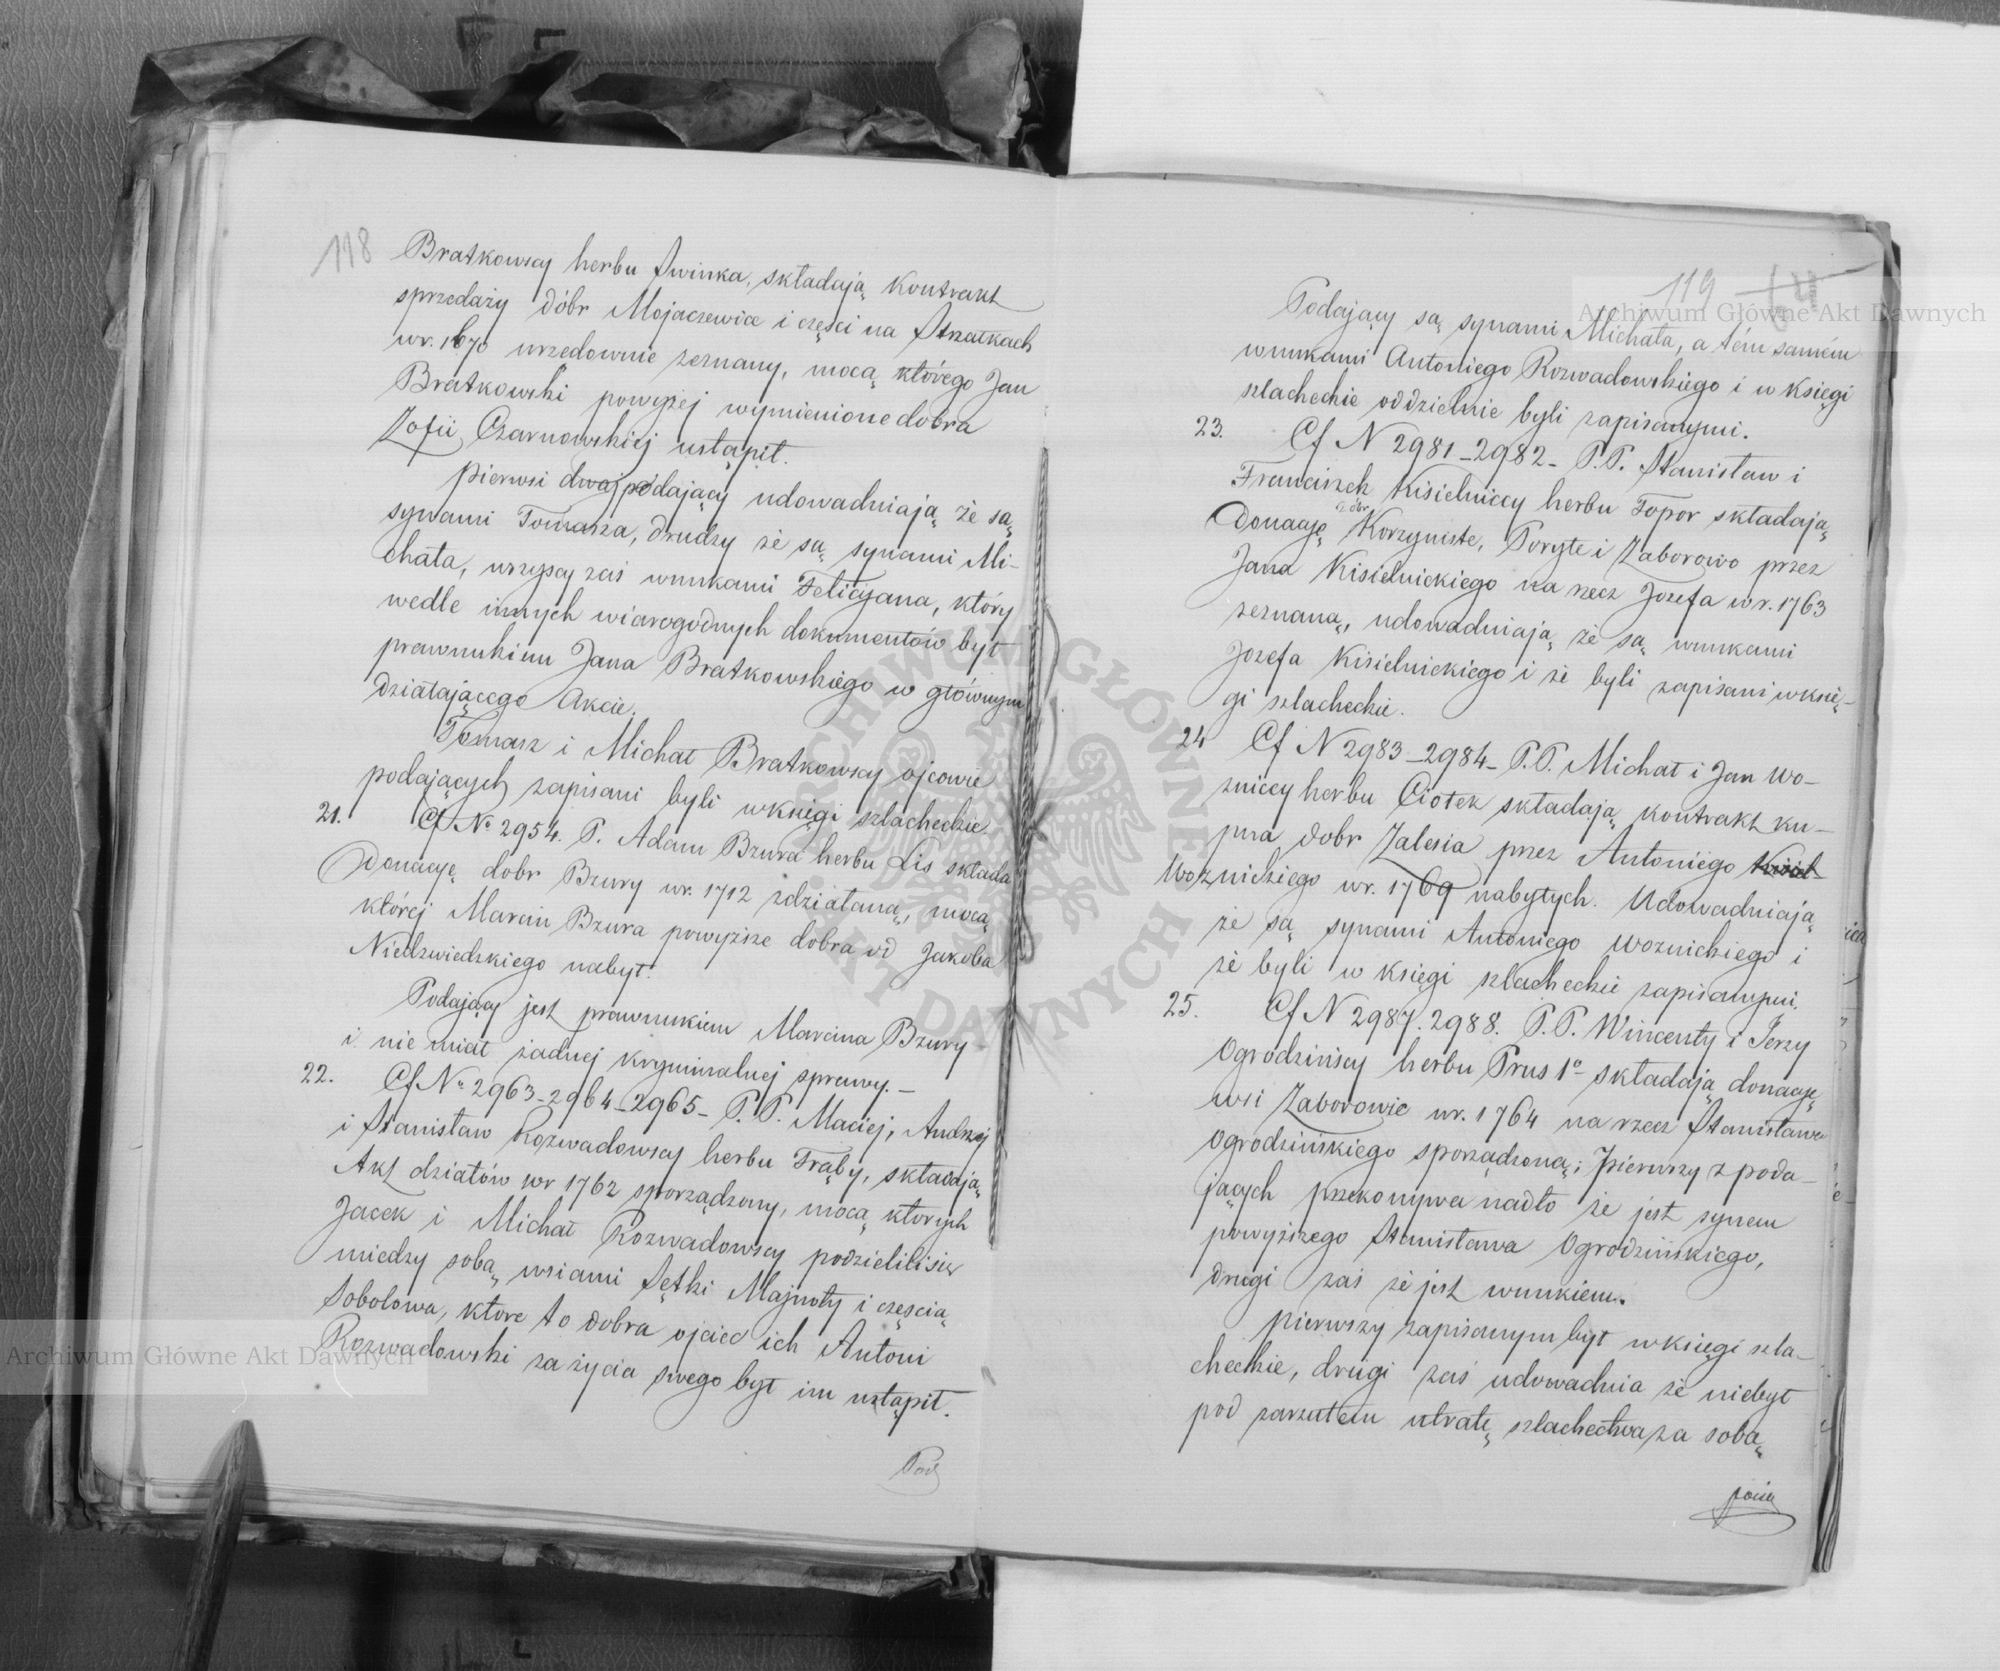 118
Bratkowscy herbu Świnka, składają kontrakt
sprzedaży dóbr Mojaczewice i części na Strzałkach
w r. 1670 urzędownie zeznany, mocą którego Jan
Bratkowski powyżej wymienione dobra
Zofii Czarnowskiej ustąpił.
Pierwsi dwaj podający udowadniają że są
synami Tomasza, drudzy że są synami Mi-
chała, wszyscy zaś wnukami Felicyana, który
wedle innych wiarogodnych dokumentów był
prawnukiem Jana Bratkowskiego w głównym
działającego Akcie.
Tomasz i Michał Bratkowscy ojcowie
podających zapisani byli w księgi szlacheckie.
21. Cf Nº 2954. P. Adam Bzura herbu Lis składa
Donacyę dobr Bzury w r. 1712 zdziałaną, mocą
której Marcin Bzura powyższe dobra od Jakóba
Niedzwiedzkiego nabył.
Podający jest prawnukiem Marcina Bzury
i nie miał żadnej kryminalnej sprawy.–
22. Cf Nº 2963–2964–2965– P.P. Maciej, Andrzej
i Stanisław Rozwadowscy herbu Trąby, składają
Akt działów w r 1762 sporządzony, mocą których
Jacek i Michał Rozwadowscy podzielili się
miedzy sobą wsiami Sętki Majnoty i częścią
Sobolowa, które to dobra ojciec ich Antoni
Rozwadowski za życia swego był im ustąpił.
Pod
119
Podający są synami Michała, a tém samém
wnukami Antoniego Rozwadowskiego i w księgi
szlacheckie oddzielnie byli zapisanymi.
23. Cf N 2981–2982– P.P. Stanisław i
Franciszek Kisielniccy herbu Topor składają
Donacyę dóbr Korzyniste, Poryte i Zaborowo przez
Jana Kisielnickiego na rzecz Jozefa w r. 1763
zeznaną, udowadniają że są wnukami
Jozefa Kisielnickiego i że byli zapisani w księ-
gi szlacheckie.
24 Cf N 2983–2984– P.P. Michał i Jan Wo-
zniccy herbu Ciołek składają kontrakt ku-
pna dobr Zalesia przez Antoniego
Woznickiego w r. 1769 nabytych. Udowadniają
że są synami Antoniego Woznickiego i
że byli w księgi szlacheckie zapisanymi.
25. Cf N 2987. 2988. P.P. Wincenty i Jerzy
Ogrodzińscy herbu Prus 1º składają donacyę
wsi Zaborowie w r. 1764 na rzecz Stanisława
Ogrodzińskiego sporządzoną; Pierwszy z poda-
jących przekonywa nadto że jest synem
powyższego Stanisława Ogrodzińskiego,
drugi zaś że jest wnukiem.
Pierwszy zapisanym był w księgi szla-
checkie, drugi zaś udowadnia że niebył
pod zarzutem utratę szlachectwa za sobą
Archiwum Główne Akt Dawnych
Archiwum Główne Akt Dawnych
ARCHIWUM GŁÓWNE AKT DAWNYCH